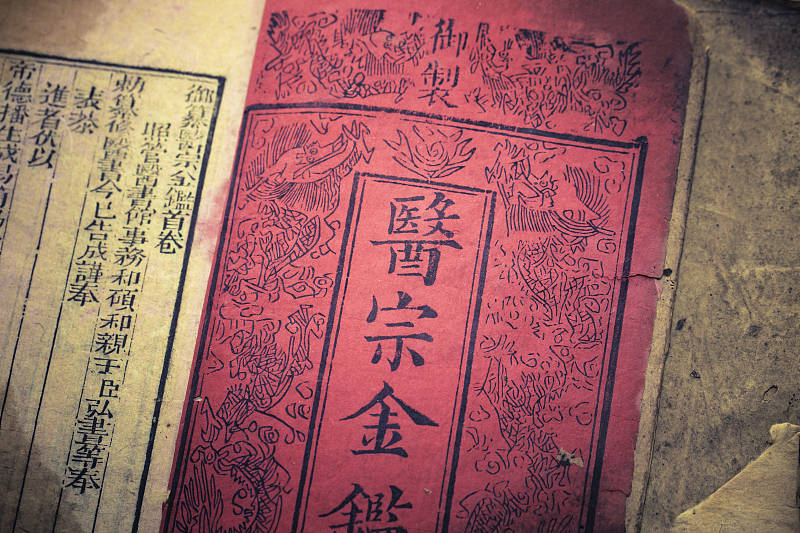 御製
醫宗金鑑
御纂醫宗金鑑首卷
照管醫書館事務和碩和親王臣弘晝等奉
勅纂修醫書今已告成謹奉
表恭
進者伏以
帝德播生成